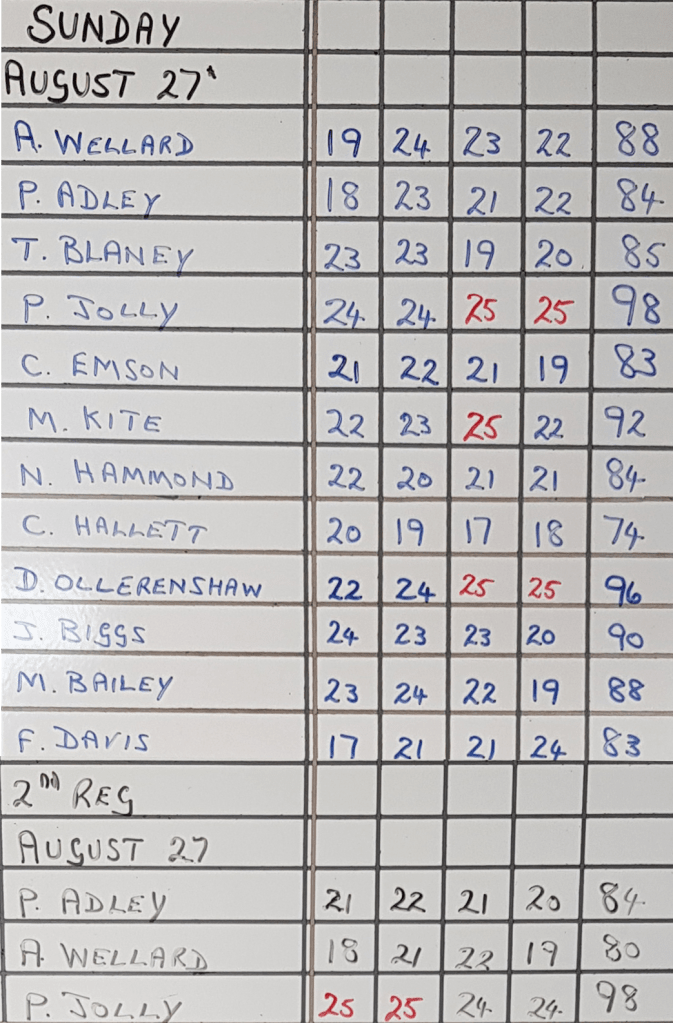 SUNDAY
AUGUST 27
A. WELLARD 19 24 23 22 88
P. ADLEY 18 23 21 22 84
T. BLANEY 23 23 19 20 85
P. JOLLY 24 24 25 25 98
C. EMSON 21 22 21 19 83
M. KITE 22 23 25 22 92
N. HAMMOND 22 20 21 21 84
C. HALLETT 20 19 17 18 74
D. OLLERENSHAW 22 24 25 25 96
J. BIGGS 24 23 23 20 90
M. BAILEY 23 24 22 19 88
F. DAVIS 17 21 21 24 83
2ND REG
AUGUST 27
P. ADLEY 21 22 21 20 84
A WELLARD 18 21 22 19 80
P. JOLLY 25 25 24 24 98